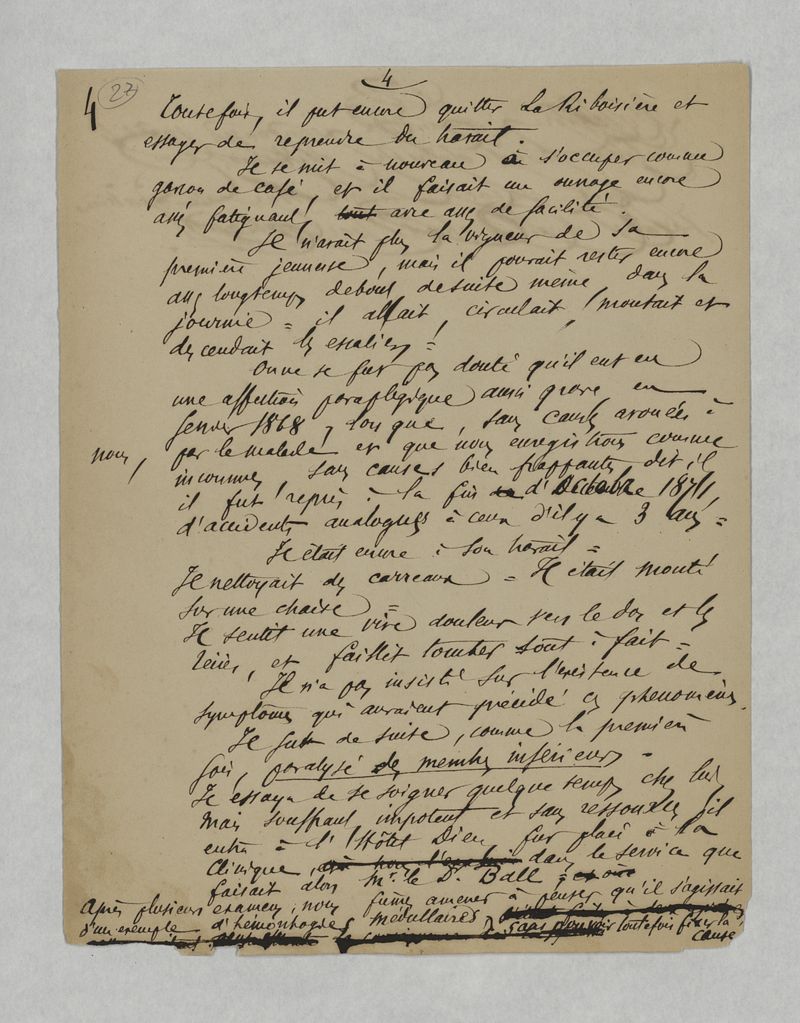 4
4 27
Toutefois, il put encore quitter La Riboisière et
essayer de reprendre du travail.
Il se mit à nouveau à s'occuper comme
garçon de café, et il faisait un ouvrage encore
assez fatiguant, tout avec assez de facilité.
Il n'avait plus la vigueur de sa
première jeunesse, mais il pouvait rester encore
assez longtemps debout de suite même, dans la
journée = il allait, circulait, montait et
descendait les escaliers =
On ne se fut pas douté qu'il eut eu
une affection paraplégique aussi grave, en
Janvier 1868, lorsque, sans causes avouées à
nous, par le malade et que nous enregistrons comme
inconnues sans causes bien frappantes, dit-il
il fut repris à la fin d'Octobre 1871,
d'accidents analogues à ceux d'il y a 3 ans =
Il était encore à son travail =
Il nettoyait des carreaux = Il était monté
sur une chaise =
Il sentit une vive douleur vers le dos et les
reins, et faillit tomber tout à fait =
Il n'a pas insisté sur l'existence de
symptômes qui auraient précédé ces phenomènes.
Il fut de suite, comme la première
fois, paralysé des membres inférieurs.
Il essaya de se soigner quelque temps chez lui,
mais souffrant impotent et sans ressources il
entra à l'Hôtel Dieu, fut placé à la
Clinique, dans le service que
faisait alors Mr. le Dr. Ball =
Après plusieurs examens, nous fûmes amener à penser qu'il s'agissait
d'un exemple d'hémorhagies médullaires,
sans pouvoir toutefois fixer la
cause